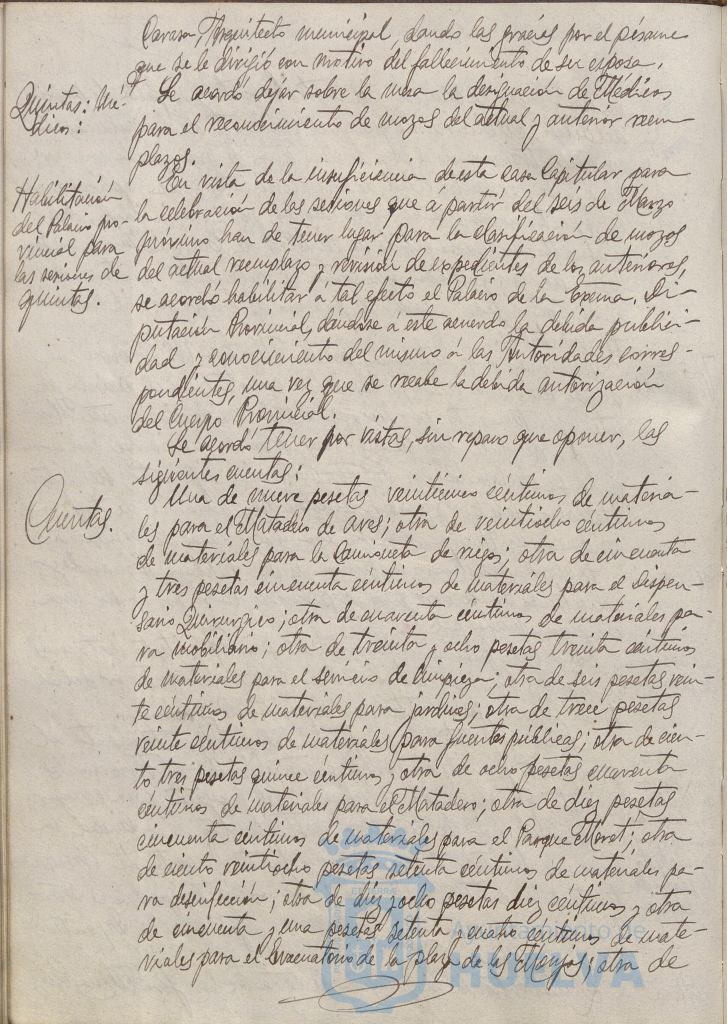 Carasa, Arquitecto municipal, dando las gracias por el pésame
que se le dirigió con motivo del fallecimiento de su esposa.
Quintas: Mé-
dicos:
Se acordó dejar sobre la mesa la designación de Médicos
para el reconocimiento de mozos del actual y anterior reem-
plazos.
Habilitación
del Palacio pro-
vincial para
las sesiones de
quintas.
En vista de la insuficiencia de esta casa Capitular para
la celebración de las sesiones que á partir del seis de Marzo
próximo han de tener lugar para la clasificación de mozos
del actual reemplazo y revisión de expedientes de los anteriores,
se acordó habilitar á tal efecto el Palacio de la Excma. Di-
putación Provincial, dándose á este acuerdo la debida publici-
dad y conocimiento del mismo á las Autoridades corres-
pondientes, una vez que se recabe la debida autorización
del Cuerpo Provincial.
Se acordó tener por vistas, sin reparo que oponer, las
siguientes cuentas:
Cuentas.
Una de nueve pesetas veinticinco céntimos de materia-
les para el Matadero de aves; otra de veintiocho céntimos
de materiales para la Camioneta de riegos; otra de cincuenta
y tres pesetas cincuenta céntimos de materiales para el Dispen-
sario Quirúrgico; otra de cuarenta céntimos de materiales pa-
ra mobiliario; otra de treinta y ocho pesetas treinta céntimos
de materiales para el servicio de limpieza; otra de seis pesetas vein-
te céntimos de materiales para jardines; otra de trece pesetas
veinte céntimos de materiales para fuentes públicas; otra de cien-
to tres pesetas quince céntimos y otra de ocho pesetas cuarenta
céntimos de materiales para el Matadero; otra de diez pesetas
cincuenta céntimos de materiales para el Parque Moret; otra
de ciento veintiocho pesetas setenta céntimos de materiales pa-
ra desinfección; otra de diez y ocho pesetas diez céntimos y otra
de cincuenta y una pesetas setenta y cuatro céntimos de mate-
riales para el Evacuatorio de la plaza de las Monjas; otra de
Ayuntamiento de
HUELVA